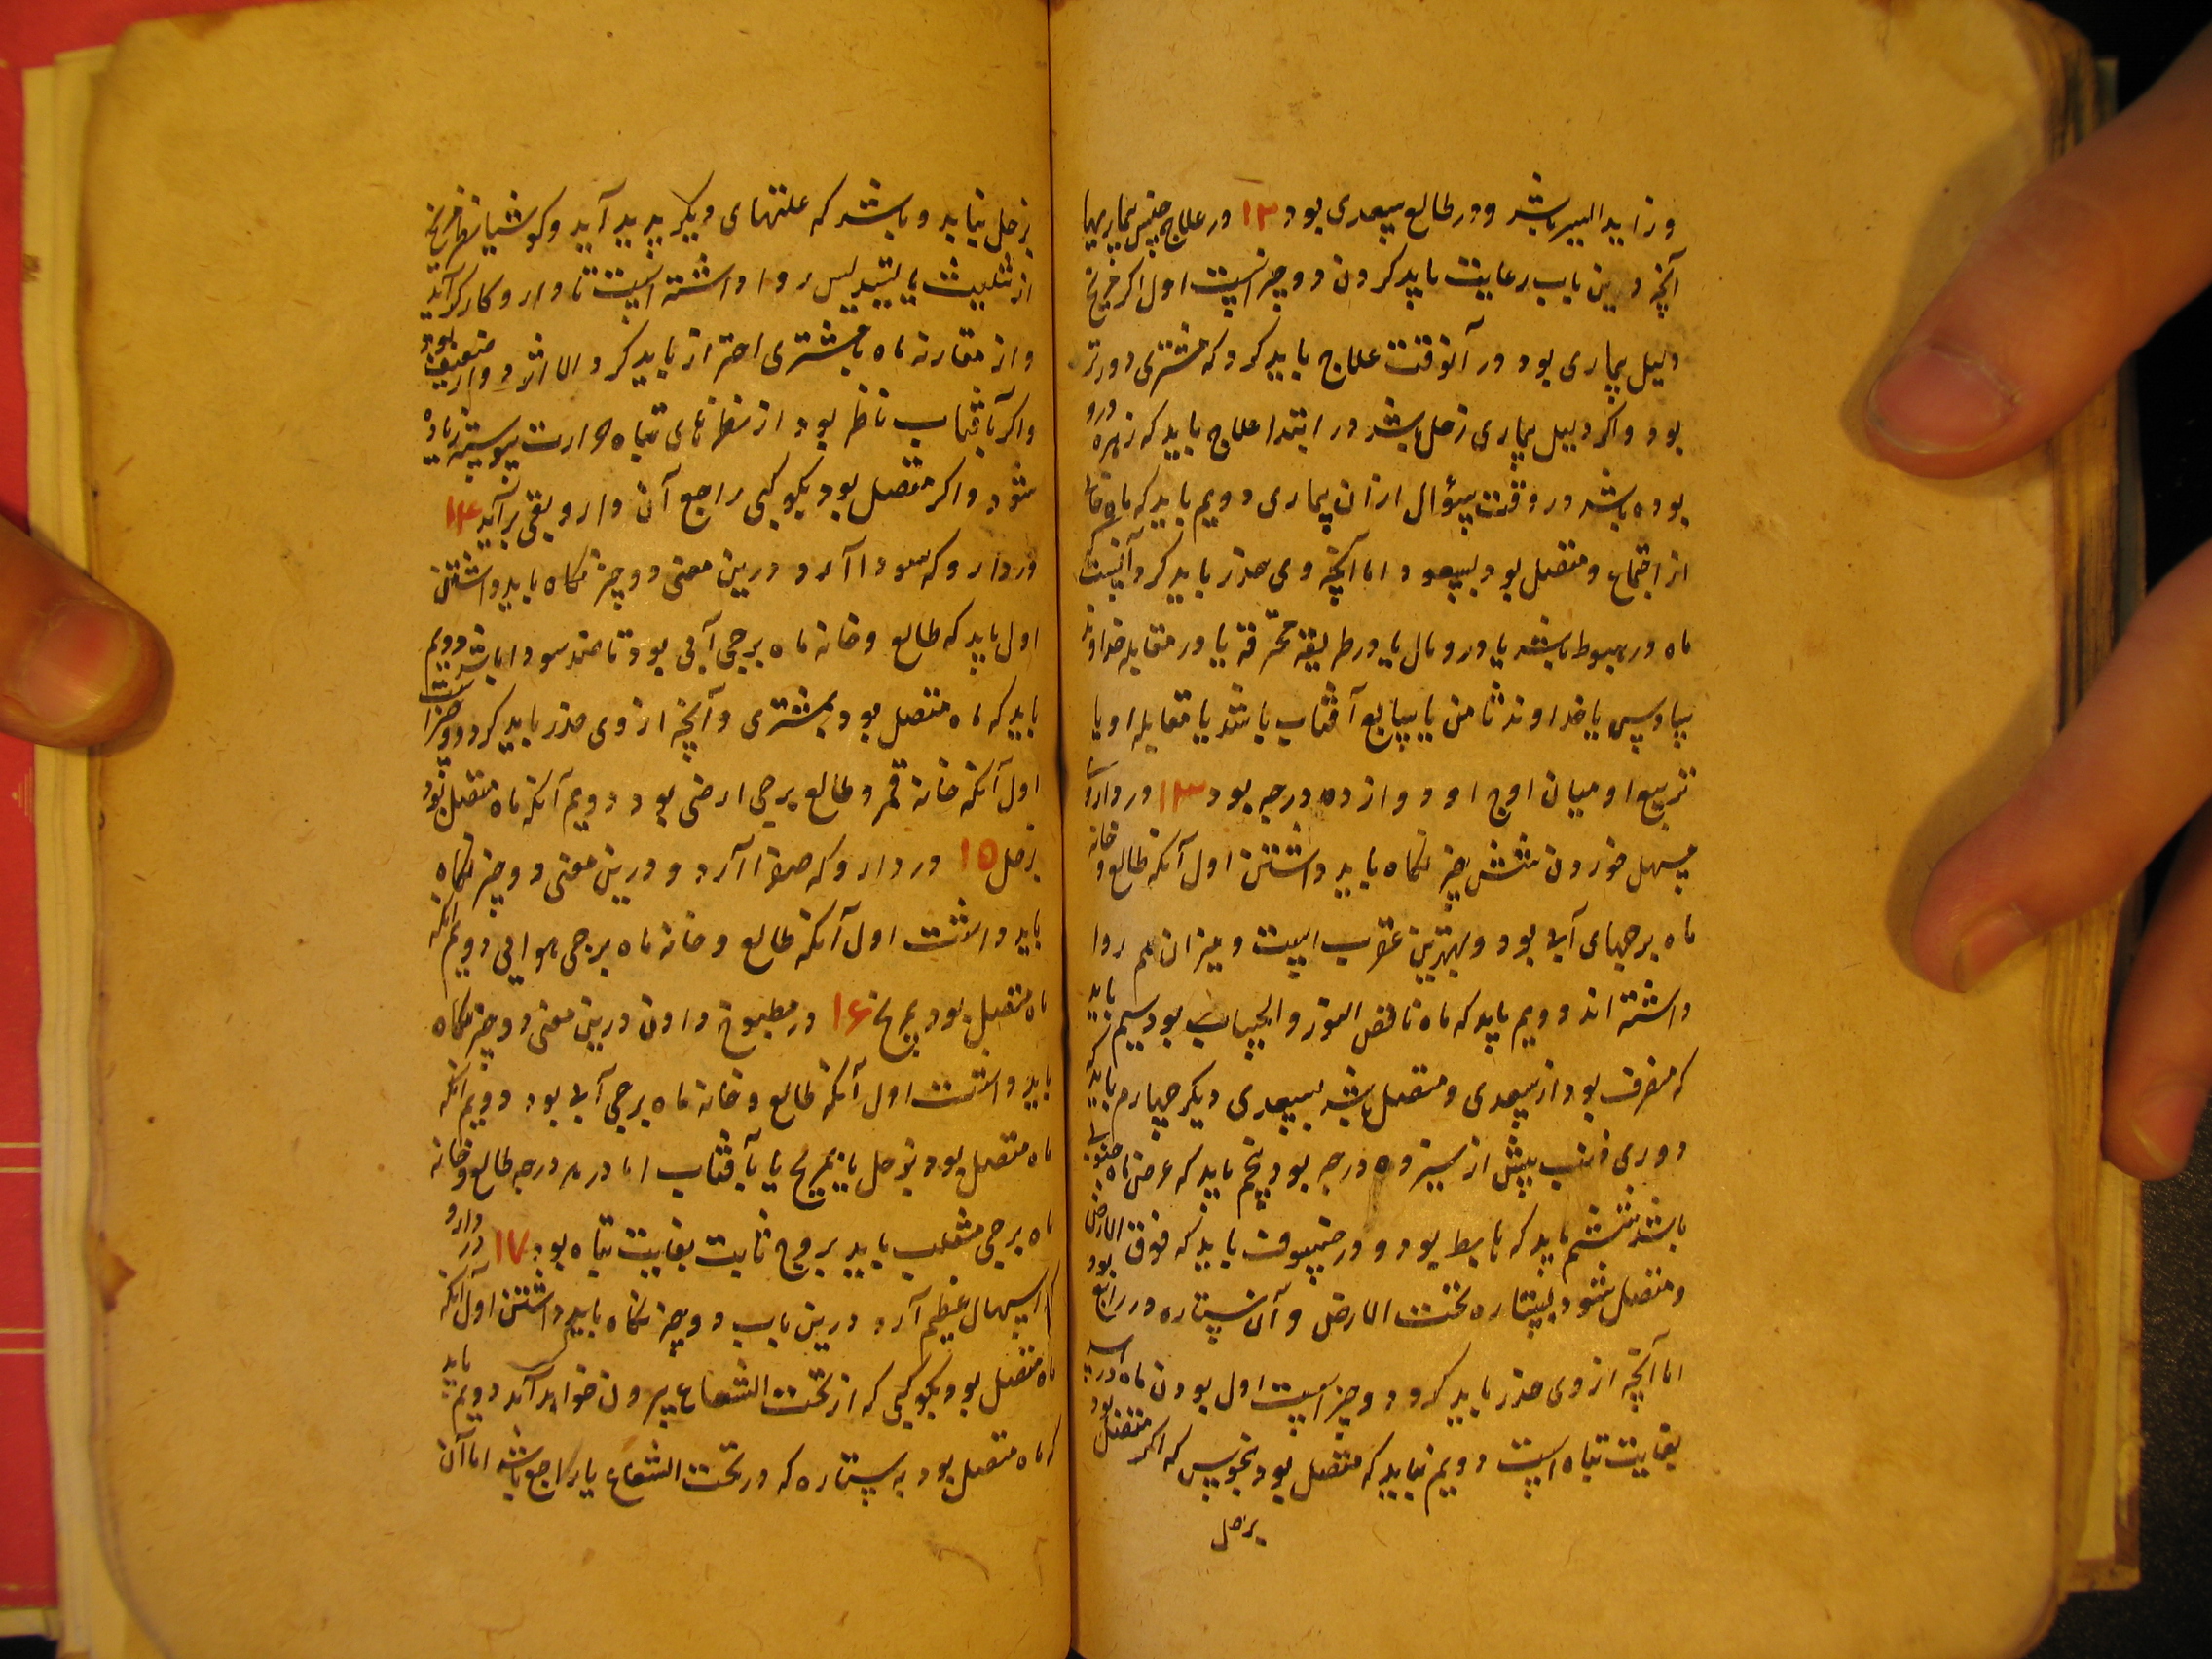 و زاید السیر باشد و در طالع سعدی بود ۱۲ در علاج جنس بیماریها
آنچه درین باب رعایت باید کردن دو چیز است اول اکر مریخ
دلیل بیماری بود در آنوقت علاج باید کرد که مشتری دورتر
بود و اکر دلیل بیماری زحل باشد در ابتدا علاج باید که زهره درو
بوده باشد در وقت سؤال ازان بیماری دویم باید که ماه
از اجتماع و متصل بود بسعود اما آنچه وی حذر باید کرد آنست که
ماه در هبوط باشد یا در وبال یا در طریقه محترقه یا در مقابله خداوند
سادس یا خداوند ثامن یا سابع آفتاب باشد یا مقابله او یا
تربیع او میان اوج او دوازده درجه بود ۱۳ در داروی
مسهل خوردن شش چیز نکاه باید داشتن اول آنکه طالع و خانه
ماه برجهای آبی بود و بهترین عقرب است و میزان هم روا
داشته اند دویم باید که ماه ناقص النور و الحساب بود سیم باید
که منصرف بود از سعدی و متصل باشد بسعدی دیکر چهارم باید که
دوری ذنب بیش از سیزده درجه بود پنجم باید که عرض ماه جنوبی
باشد ششم باید که هابط بود و در خسوف باید که فوق الارض بود
و متصل شود بستاره تحت الارض و آن ستاره در رابع
اما آنچه ازوی حذر باید کرد دو چیز است اول بودن ماه در اسد
بغایت تباه است دویم نباید که متصل بود بنحوس که اکر متصل بود
بزحل
بزحل نباید و باشد که علتهای دیکر پدید آید و کوشیار نظر مریخ
از تثلیث یا تسدیس روا داشته است تا دارو کارکر آید
و از مقارنه ماه با مشتری احتراز باید کرد الا اثر دارو ضعیف بود
و اکر بآفتاب ناظر بود از نظرهای تباه حرارت پیوسته زیاده
شود و اکر متصل بود بکوکبی راجع آن دارو بقی برآید ۱۴
در دارو که سودا آرد درین معنی دو چیز نکاه باید داشتن
اول باید که طالع و خانه ماه برجی آبی بود تا ضد سودا باشد دویم
باید که ماه متصل بود بمشتری و آنچه ازوی حذر باید کرد دو چیز است
اول آنکه خانه قمر و طالع برجی ارضی بود دویم آنکه ماه متصل بود
بزحل ۱۵ در دارو که صفرا آرد و درین معنی دو چیز نکاه
باید داشت اول آنکه طالع و خانه ماه برجی هوایی دویم آنکه
ماه متصل بود بمریخ ۱۶ در مطبوخ دادن درین معنی دو چیز نکاه
باید داشت اول آنکه طالع و خانه ماه برجی آبی بود دویم آنکه
ماه متصل بود بزحل یا بمریخ یا بآفتاب اما در هر درجه طالع و خانه
ماه برجی منقلب باید بروج ثابت بغایت تباه بود ۱۷ در دارو
که اسهال عظیم آرد درین باب دو چیز نکاه باید داشتن اول آنکه
ماه متصل بود بکوکبی که از تحت الشعاع بیرون خواهد آمد دویم باید
که ماه متصل بود به ستاره که در تحت الشعاع یا راجع باشد اما آن